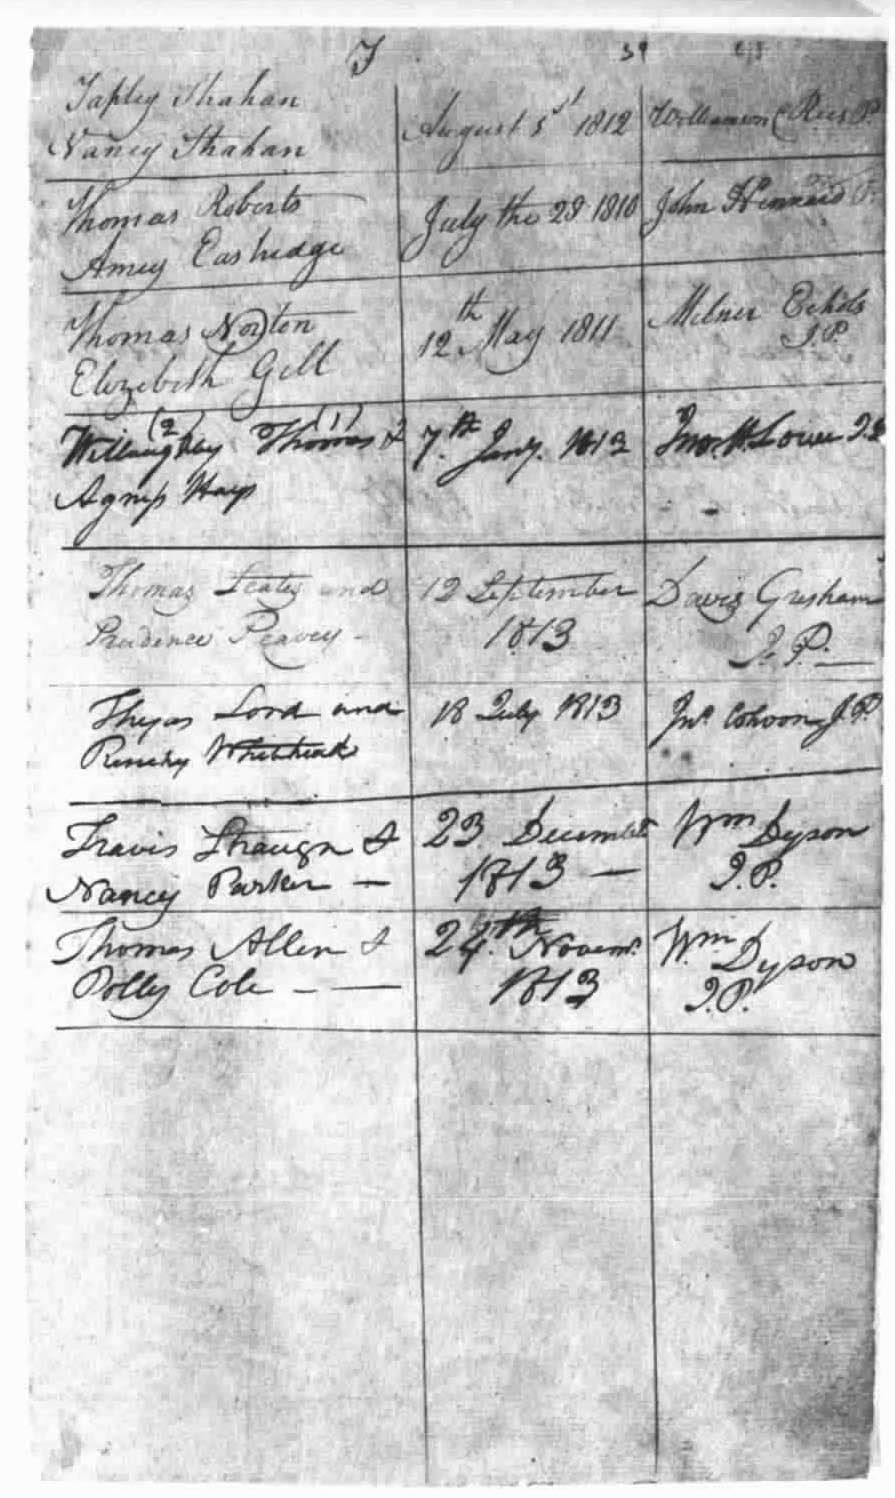 T 39
Tapley Thahan
Nancy Thahan
August 5st 1812
Williamson Rees
Thomas Roberts
Amey Eastredge
July the 29 1810
John Kinnard
Thomas Norton
Elizebeth Gill
12th May 1811
Milner Echols
J.P.
(2) (1)
Willoughby Thomas &
Agness Hays
7th Jany. 1813
Jno. H. Lowe
Thomas and
Prudence Peavey
12 September
1813
Davis Gresham
J.P.
Lord and
Whitehead
18 July 1813
Jno Cohoon J.P.
Travis Straugn &
Nancy Parker —
23 December
1813 —
Wm Dyson
J.P.
Thomas Allen &
Polly Cole — —
24th Novem.
1813
Wm Dyson
J.P.